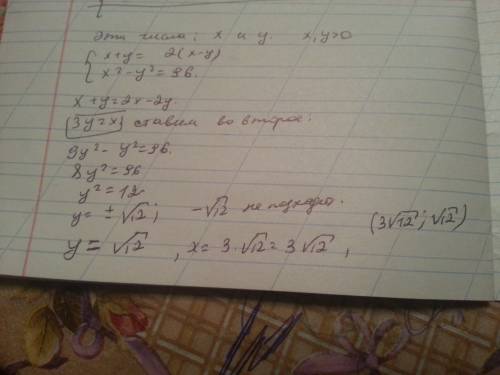 Эти числа: x и y. x, y>0
{ x+y= 2(x-y)
x²-y²=96.
x+y=2x-2y.
3y=x ставим во второе:
9y²-y²=96.
8y²=96
y²=12
y=±√12; -√12 не подходит.
(3√12; √12)
y=√12, x=3·√12=3√12,